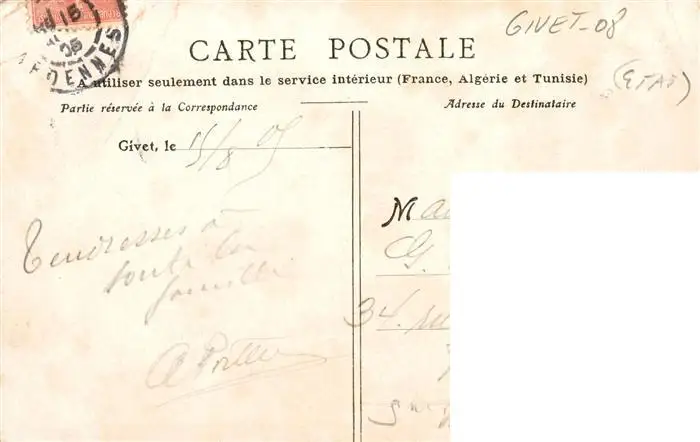 15
05
ARDENNES
GIVET-08
CARTE POSTALE
A utiliser seulement dans le service intérieur (France, Algérie et Tunisie)
(ETAT)
Partie réservée à la Correspondance
Adresse du Destinataire
Givet, le 15/8 05
Tendresses à
toute la
famille
Ma
G.
34.